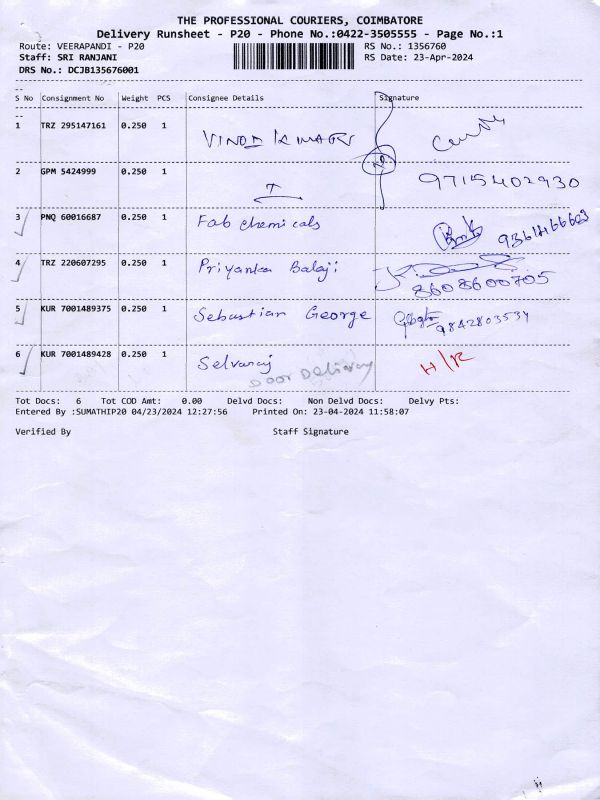 THE PROFESSIONAL COURIERS, COIMBATORE
Delivery Runsheet - P20 - Phone No.:0422-3505555 - Page No.:1
Route: VEERAPANDI - P20 RS No.: 1356760
Staff: SRI RANJANI RS Date: 23-Apr-2024
DRS No.: DCJB135676001
S No Consignment No Weight PCS Consignee Details Signature
1 TRZ 295147161 0.250 1 VINOD KUMAR
2 GPM 5424999 0.250 1 9715402930
3 PNQ 60016687 0.250 1 Fab chemicals
4 TRZ 220607295 0.250 1 Priyanka Balaji 8608600705
5 KUR 7001489375 0.250 1 Sebastian George 9842803534
6 KUR 7001489428 0.250 1 Selvaraj Door Delivery H/R
Tot Docs: 6 Tot COD Amt: 0.00 Delvd Docs: Non Delvd Docs: Delvy Pts:
Entered By :SUMATHIP20 04/23/2024 12:27:56 Printed On: 23-04-2024 11:58:07
Verified By Staff Signature